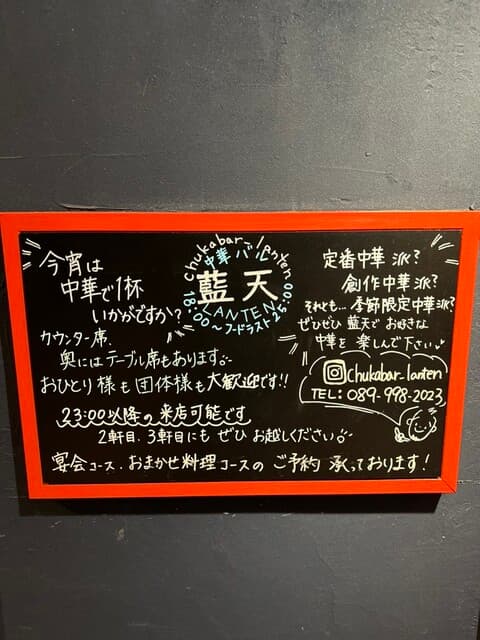 今宵は
中華で1杯
いかがですか?
カウンター席、
奥にはテーブル席もあります。
おひとり様も団体様も大歓迎です!!
23:00以降の来店可能です
2軒目、3軒目にもぜひお越しください。
宴会コース、おまかせ料理コースのご予約承っております!
chukabar-lanten
中華バル
藍天
LANTEN
18:00~フードラスト25:00
定番中華派?
創作中華派?
それとも…季節限定中華派?
ぜひぜひ藍天でお好きな
中華を楽しんで下さい♪
chukabar-lanten
TEL: 089-998-2023